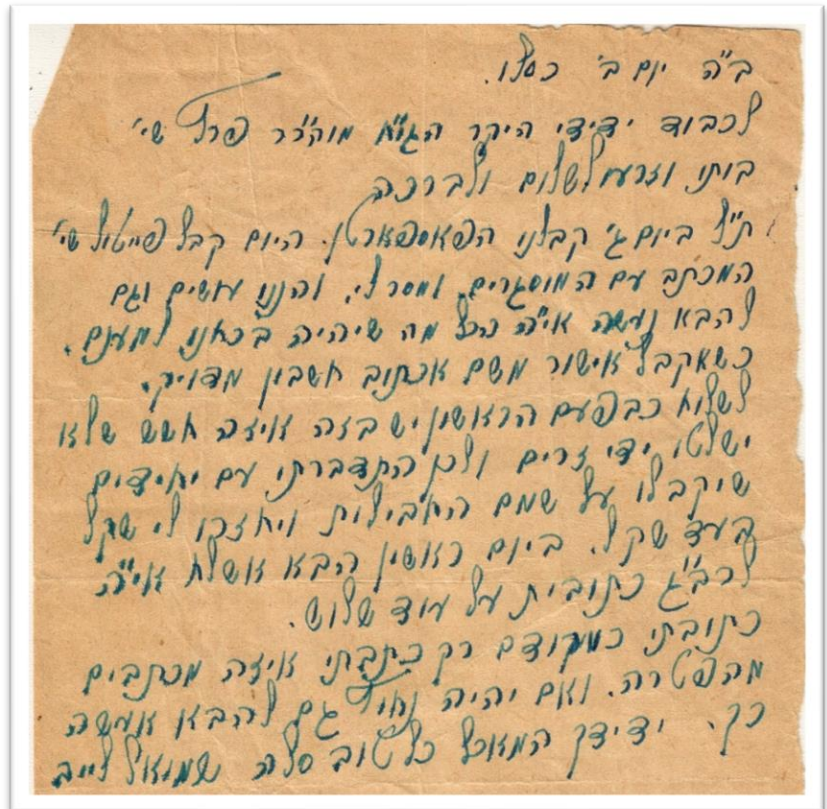 ב"ה יום ב' כסלו.
לכבוד ידידי היקר הגו"ח מוה"ר פרץ שי'
ביתו וזרעו לשלום ולברכה
ת"ל ביום ג' קבלנו הפאספארטן. היום קבל פייטיל שי'
המכתב עם המוסגרים, ומסר לי, והננו עושים וגם
להבא נעשה אי"ה ככל מה שיהיה בכחנו למענם.
כשאקבל אישור משם אכתוב חשבון מדויק.
לשלוח כבפעם הראשון יש בזה איזה חשש שלא
ישלטו ידי זרים ולכן התדברתי עם יחידים
שיקבלו על שמם החבילות ויחזרו לי שקל
בעד שקל. ביום ראשון הבא אשלח אי"ה
לרב"ג כתובית על עוד שלוש.
כתובתי כמקודם רק כתבתי איזה מכתבים
מהפטרה. ואם יהיה גם להבא אעשה
כך. ידידך המאחל כל טוב סלה שמואל לייב